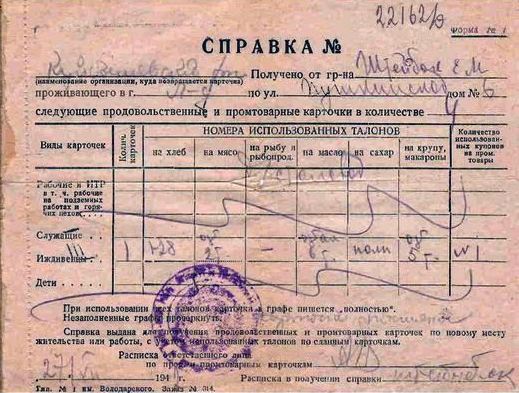 22162/э
Форма № 1
СПРАВКА №
Получено от гр-на Штейнбок Е. М
(наименование организации, куда возвращается карточка)
проживающего в г. Л-д по ул. Пушкинской дом № 6
следующие продовольственные и промтоварные карточки в количестве
Виды карточек
Колич. карточек
НОМЕРА ИСПОЛЬЗОВАННЫХ ТАЛОНОВ
на хлеб
на мясо
на рыбу и рыбопрод.
на масло
на сахар
на крупу, макароны
Количество использованных купонов на пром. товары
Рабочие и ИТР
в т. ч. рабочие
на подземных
работах и горя-
чих цехов
Служащие . .
Иждивенцы 1 1-28 — полн № 1
Дети . . .
При использовании всех талонов карточки в графе пишется „полностью".
Незаполненные графы прочеркнуть.
Справка выдана для получения продовольственных и промтоварных карточек по новому месту
жительства или работы, с учетом использованных талонов по сданным карточкам.
Расписка ответственного лица
по прод. и промтоварным карточкам
27 194
Расписка в получении справки Штейнбок
Тип. № 1 им. Володарского. Заказ № 314.